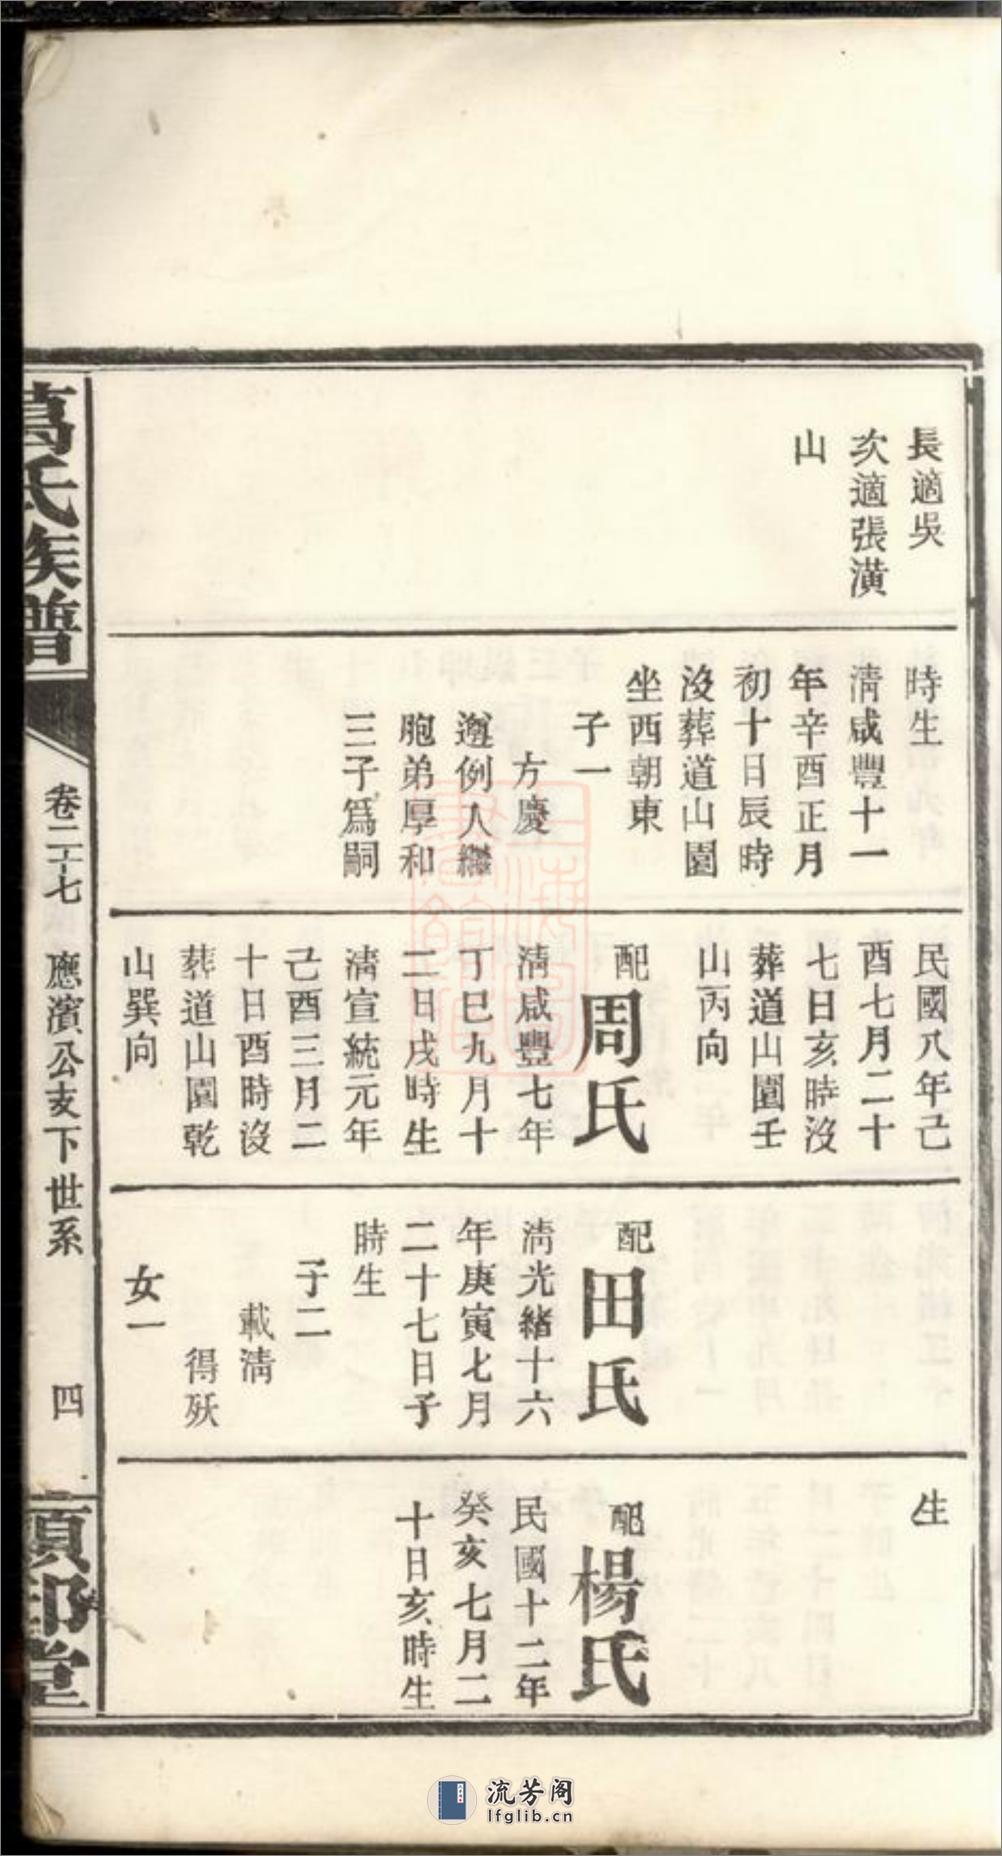 長適吳
次適張潢
山
時生
淸咸豐十一
年辛酉正月
初十日辰時
沒葬道山園
坐西朝東
子一
方慶
遵例人繼
胞弟厚和
三子爲嗣
民國八年己
酉七月二十
七日亥時沒
葬道山園壬
山丙向
配周氏
淸咸豐七年
丁巳九月十
二日戌時生
淸宣統元年
己酉三月二
十日酉時沒
葬道山園乾
山巽向
生
配田氏
淸光緒十六
年庚寅七月
二十七日子
時生
子二
載淸
得殀
女一
配楊氏
民國十二年
癸亥七月二
十日亥時生
葛氏族譜
卷二十七
應濱公支下世系
四
堂
流芳阁
lfglib.cn